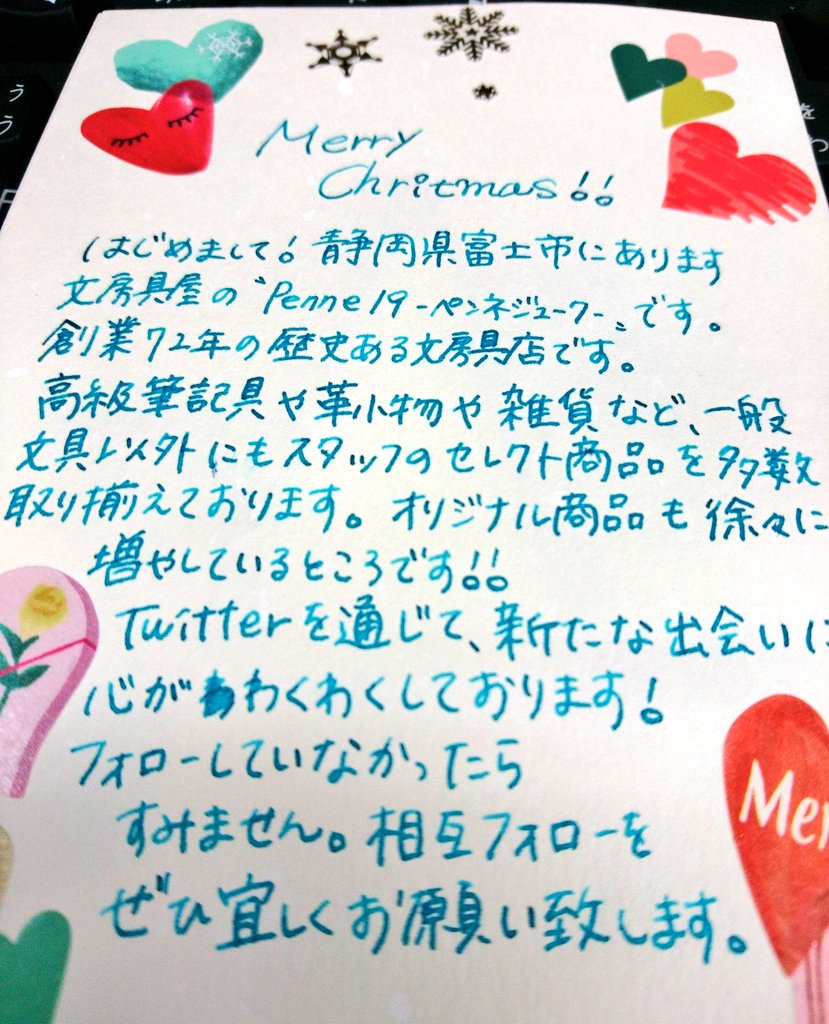 Merry
Chritmas!!
はじめまして! 静岡県富士市にあります
文房具屋の〝Penne19-ペンネジューク-〟です。
創業72年の歴史ある文房具店です。
高級筆記具や革小物や雑貨など、一般
文具以外にもスタッフのセレクト商品を多数
取り揃えております。オリジナル商品も徐々に
増やしているところです!!
Twitterを通じて、新たな出会いに
心がわくわくしております!
フォローしていなかったら
すみません。相互フォローを
ぜひ宜しくお願い致します。
Mer